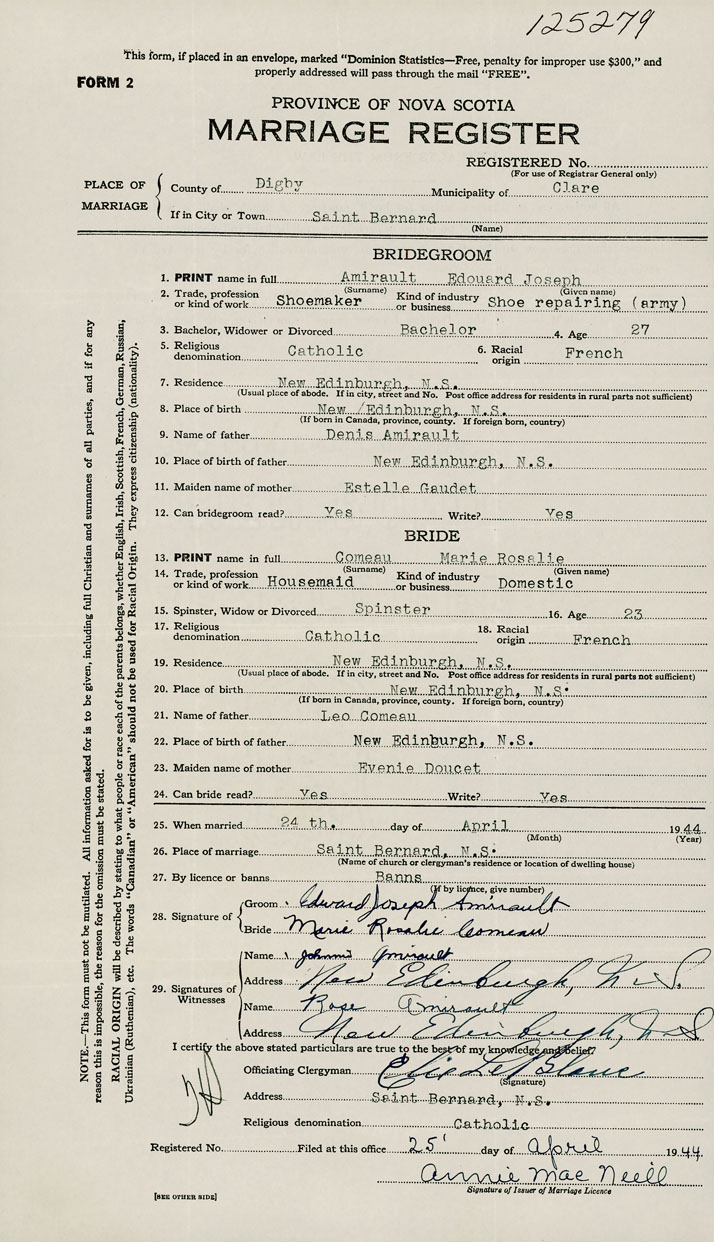 125279
This form, if placed in an envelope, marked "Dominion Statistics—Free, penalty for improper use $300," and
properly addressed will pass through the mail "FREE".
FORM 2
PROVINCE OF NOVA SCOTIA
MARRIAGE REGISTER
REGISTERED No.
(For use of Registrar General only)
PLACE OF MARRIAGE
County of Digby Municipality of Clare
If in City or Town Saint Bernard
(Name)
BRIDEGROOM
1. PRINT name in full Amirault Edouard Joseph
(Surname) (Given name)
2. Trade, profession or kind of work Shoemaker Kind of industry or business Shoe repairing (army)
3. Bachelor, Widower or Divorced Bachelor 4. Age 27
5. Religious denomination Catholic 6. Racial origin French
7. Residence New Edinburgh, N.S.
(Usual place of abode. If in city, street and No. Post office address for residents in rural parts not sufficient)
8. Place of birth New /Edinburgh, N.S.
(If born in Canada, province, county. If foreign born, country)
9. Name of father Denis Amirault
10. Place of birth of father New Edinburgh, N.S.
11. Maiden name of mother Estelle Gaudet
12. Can bridegroom read? Yes Write? Yes
BRIDE
13. PRINT name in full Comeau Marie Rosalie
(Surname) (Given name)
14. Trade, profession or kind of work Housemaid Kind of industry or business Domestic
15. Spinster, Widow or Divorced Spinster 16. Age 23
17. Religious denomination Catholic 18. Racial origin French
19. Residence New Edinburgh, N.S.
(Usual place of abode. If in city, street and No. Post office address for residents in rural parts not sufficient)
20. Place of birth New Edinburgh, N.S.
(If born in Canada, province, county. If foreign born, country)
21. Name of father Leo Comeau
22. Place of birth of father New Edinburgh, N.S.
23. Maiden name of mother Evenie Doucet
24. Can bride read? Yes Write? Yes
25. When married 24 th. day of April 1944
(Month) (Year)
26. Place of marriage Saint Bernard, N.S.
(Name of church or clergyman's residence or location of dwelling house)
27. By licence or banns Banns
(If by licence, give number)
28. Signature of
Groom Edward Joseph Amirault
Bride Marie Rosalie Comeau
29. Signatures of Witnesses
Name Johnni Amirault
Address New Edinburgh, N.S.
Name Rose Amirault
Address New Edinburgh, N.S
I certify the above stated particulars are true to the best of my knowledge and belief.
Officiating Clergyman Elie LeBlanc
(Signature)
Address Saint Bernard, N.S.
Religious denomination Catholic
Registered No. Filed at this office 25' day of April 1944
Annie MacNeill
Signature of Issuer of Marriage Licence
[SEE OTHER SIDE]
NOTE.—This form must not be mutilated. All information asked for is to be given, including full Christian and surnames of all parties, and if for any
reason this is impossible, the reason for the omission must be stated.
RACIAL ORIGIN will be described by stating to what people or race each of the parents belongs, whether English, Irish, Scottish, French, German, Russian,
Ukrainian (Ruthenian), etc. The words "Canadian" or "American" should not be used for Racial Origin. They express citizenship (nationality).